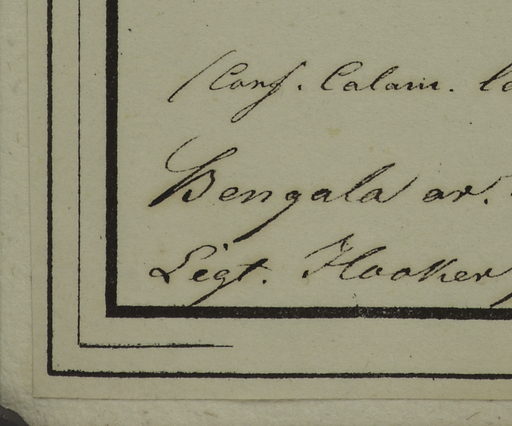 (Conf. Calam.
Bengala or.
Legt. Hooker